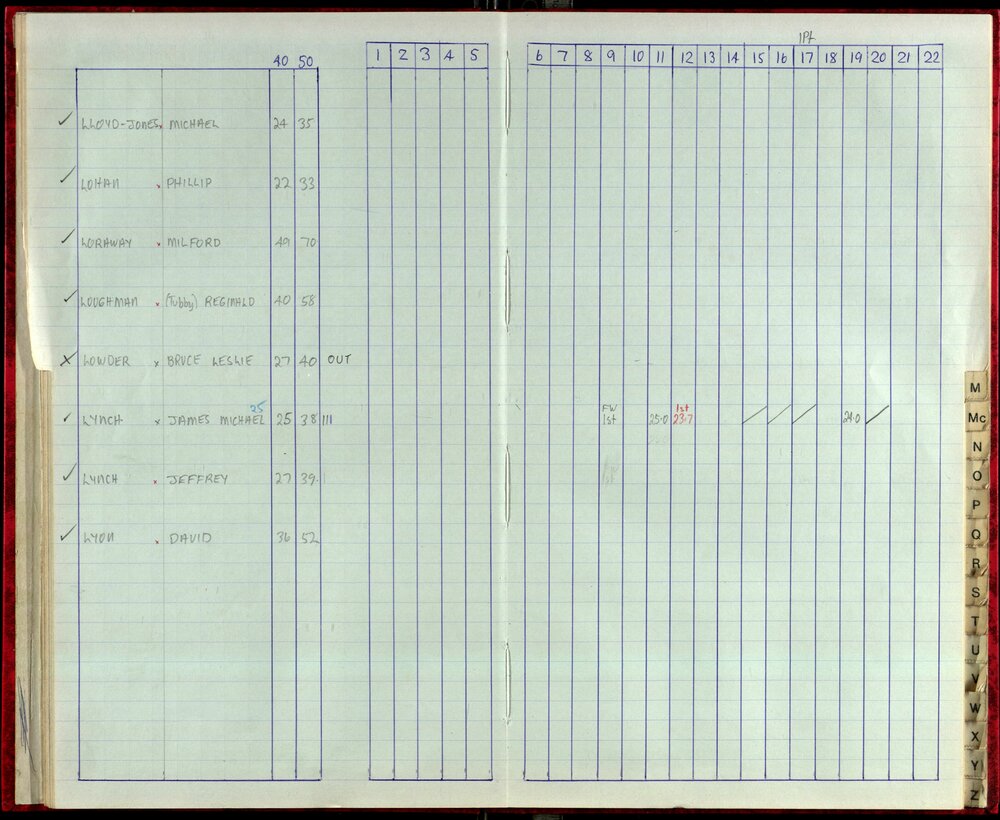 1Pt
40 50 1 2 3 4 5 6 7 8 9 10 11 12 13 14 15 16 17 18 19 20 21 22
✓ LLOYD-JONES x MICHAEL 24 35
✓ LOHAN x PHILLIP 22 33
✓ LORAWAY x MILFORD 49 70
✓ LOUGHMAN x (Tubby) REGINALD 40 58
X LOWDER x BRUCE LESLIE 27 40 OUT
25 FW 1st
✓ LYNCH x JAMES MICHAEL 25 38 III 1st 25.0 23.7 / / / 24.0 /
✓ LYNCH x JEFFREY 27 39
✓ LYON x DAVID 36 52
M
Mc
N
O
P
Q
R
S
T
U
V
W
X
Y
Z